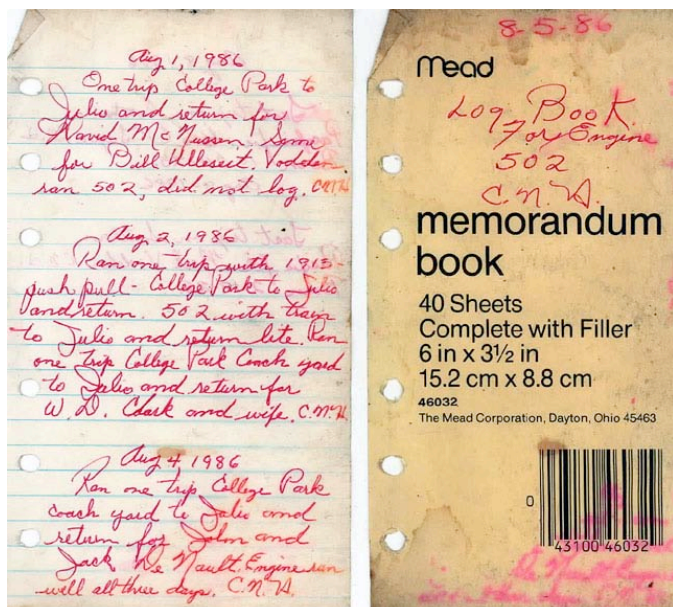 Aug 1, 1986
One trip College Park to
Julio and return for
David McNussen Same
for Bill Ulleseit. Vodden
ran 502, did not log. C.N.H.
Aug 2, 1986
Ran one trip with 1913-
push pull - College Park to Julio
and return. 502 with train
to Julio and return lite. Ran
one trip College Park Coach yard
to Julio and return for
W. D. Clark and wife. C.N.H.
Aug 4 1986
Ran one trip College Park
coach yard to Julio and
return for John and
Jack De Nault. Engine ran
well all three days. C.N.H.
8-5-86
Mead
Log Book
For Engine
502
C.N.H.
memorandum
book
40 Sheets
Complete with Filler
6 in x 3½ in
15.2 cm x 8.8 cm
46032
The Mead Corporation, Dayton, Ohio 45463
0
43100 46032